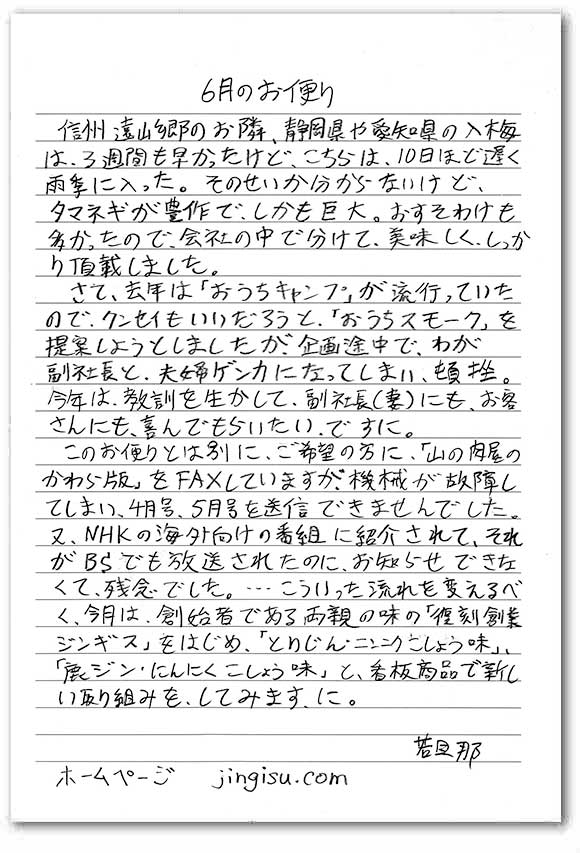 6月のお便り
信州遠山郷のお隣、静岡県や愛知県の入梅
は、3週間も早かったけど、こちらは、10日ほど遅く
雨季に入った。そのせいか分からないけど、
タマネギが豊作で、しかも巨大。おすそわけも
多かったので、会社の中で分けて、美味しく、しっか
り頂戴しました。
さて、去年は「おうちキャンプ」が流行っていた
ので、クンセイもいいだろうと、「おうちスモーク」を
提案しようとしましたが、企画途中で、わが
副社長と、夫婦ゲンカになってしまい、頓挫。
今年は、教訓を生かして、副社長(妻)にも、お客
さんにも、喜んでもらいたい、ですに。
このお便りとは別に、ご希望の方に、「山の肉屋の
かわら版」をFAXしていますが、機械が故障し
てしまい、4月号、5月号を送信できませんでした。
又、NHKの海外向けの番組に紹介されて、それ
がBSでも放送されたのに、お知らせできな
くて、残念でした。…こういった流れを変えるべ
く、今月は、創始者である両親の味の「復刻創業
ジンギス」をはじめ、「とりじん・ニンニクこしょう味」、
「鹿ジン・にんにくこしょう味」と、看板商品で新し
い取り組みを、してみます、に。
若旦那
ホームページ jingisu.com